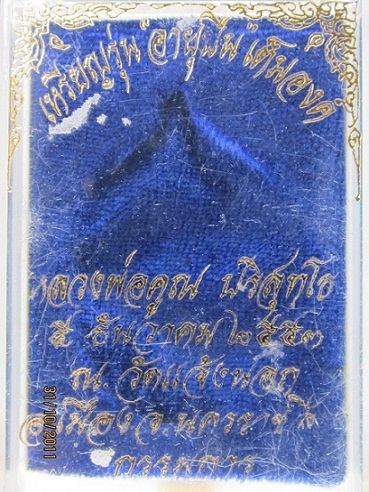 เหรียญรุ่น "อายุยืน" เต็มองค์
หลวงพ่อคูณ ปริสุทฺโธ
๕ ธันวาคม ๒๕๕๓
ณ.วัดแจ้งนอก
อ.เมือง จ.นครราช
กรรมการ
31/10/2011